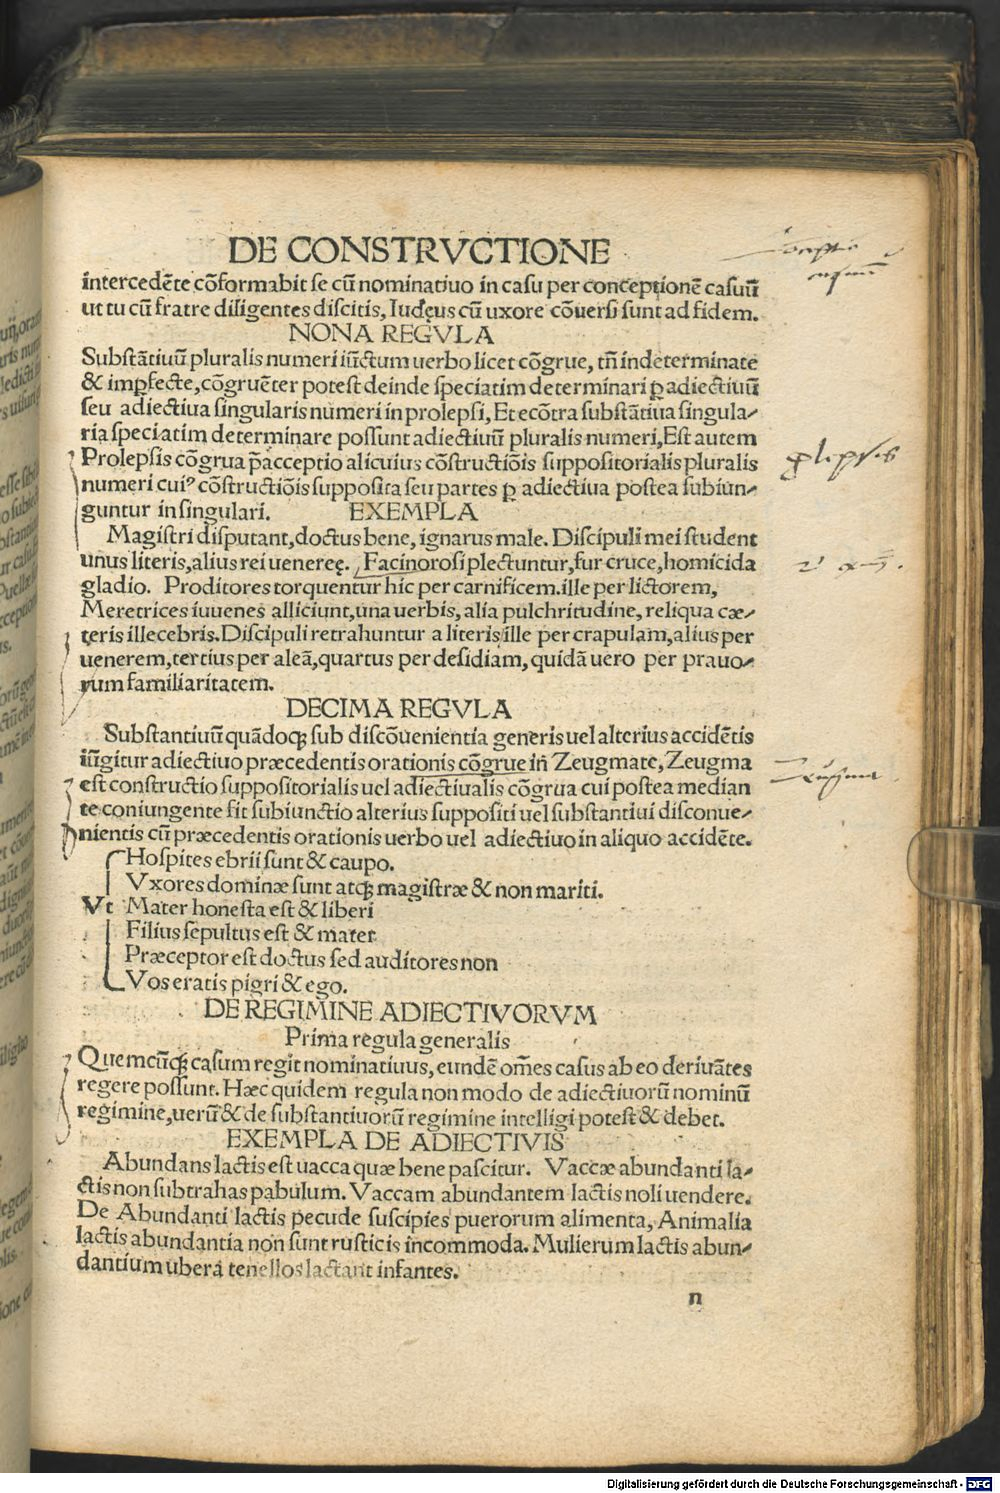 DE CONSTRVCTIONE
intercedēte cōformabit se cū nominatiuo in casu per conceptionē casuū
ut tu cū fratre diligentes discitis, Iudęus cū uxore cōuersi sunt ad fidem.
NONA REGVLA
Substātiuū pluralis numeri iūctum uerbo licet cōgrue, tñ indeterminate
& imꝑfecte, cōgruēter potest deinde speciatim determinari ꝑ adiectiuū
seu adiectiua singularis numeri in prolepsi, Et ecōtra substātiua singula⸗
ria speciatim determinare possunt adiectiuū pluralis numeri, Est autem
Prolepsis cōgrua p̄acceptio alicuius cōstructiōis suppositorialis pluralis
numeri cuiꝰ cōstructiōis supposita seu partes ꝑ adiectiua postea subiun⸗
guntur in singulari. EXEMPLA
Magistri disputant, doctus bene, ignarus male. Discipuli mei student
unus literis, alius rei uenereę. Facinorosi plectuntur, fur cruce, homicida
gladio. Proditores torquentur hic per carnificem. ille per lictorem,
Meretrices iuuenes alliciunt, una uerbis, alia pulchritudine, reliqua cæ⸗
teris illecebris. Discipuli retrahuntur a literis ille per crapulam, alius per
uenerem, tertius per aleā, quartus per desidiam, quidā uero per prauo⸗
rum familiaritatem.
DECIMA REGVLA
Substantiuū quādoqꝫ sub discōuenientia generis uel alterius accidētis
iūgitur adiectiuo præcedentis orationis cōgrue in Zeugmate, Zeugma
est constructio suppositorialis uel adiectiualis cōgrua cui postea median
te coniungente fit subiunctio alterius suppositi uel substantiui disconue⸗
nientis cū præcedentis orationis uerbo uel adiectiuo in aliquo accidēte.
Hospites ebrii sunt & caupo.
Vxores dominæ sunt atqꝫ magistræ & non mariti.
Vt Mater honesta est & liberi
Filius sepultus est & mater
Præceptor est doctus sed auditores non
Vos eratis pigri & ego.
DE REGIMINE ADIECTIVORVM
Prima regula generalis
Quemcūqꝫ casum regit nominatiuus, eundē om̄es casus ab eo deriuātes
regere possunt. Hæc quidem regula non modo de adiectiuorū nominū
regimine, uerū & de substantiuorū regimine intelligi potest & debet.
EXEMPLA DE ADIECTIVIS
Abundans lactis est uacca quæ bene pascitur. Vaccæ abundanti la⸗
ctis non subtrahas pabulum. Vaccam abundantem lactis noli uendere.
De Abundanti lactis pecude suscipies puerorum alimenta, Animalia
lactis abundantia non sunt rusticis incommoda. Mulierum lactis abun⸗
dantium ubera tenellos lactant infantes.
n
ꝓlepsis
Zeugma
Digitalisierung gefördert durch die Deutsche Forschungsgemeinschaft - DFG